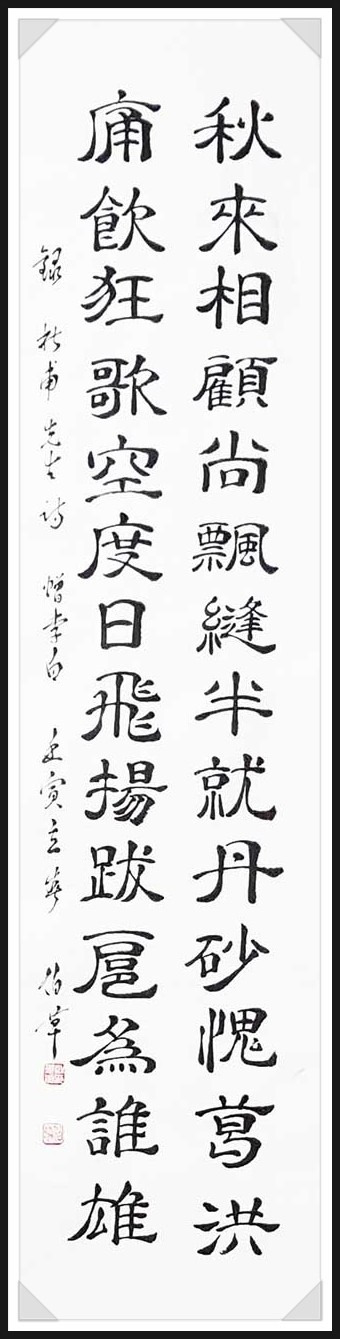 秋來相顧尚飄縫半就丹砂愧葛洪
痛飲狂歌空度日飛揚跋扈為誰雄
錄 杜甫先生詩 贈李白 壬寅立春